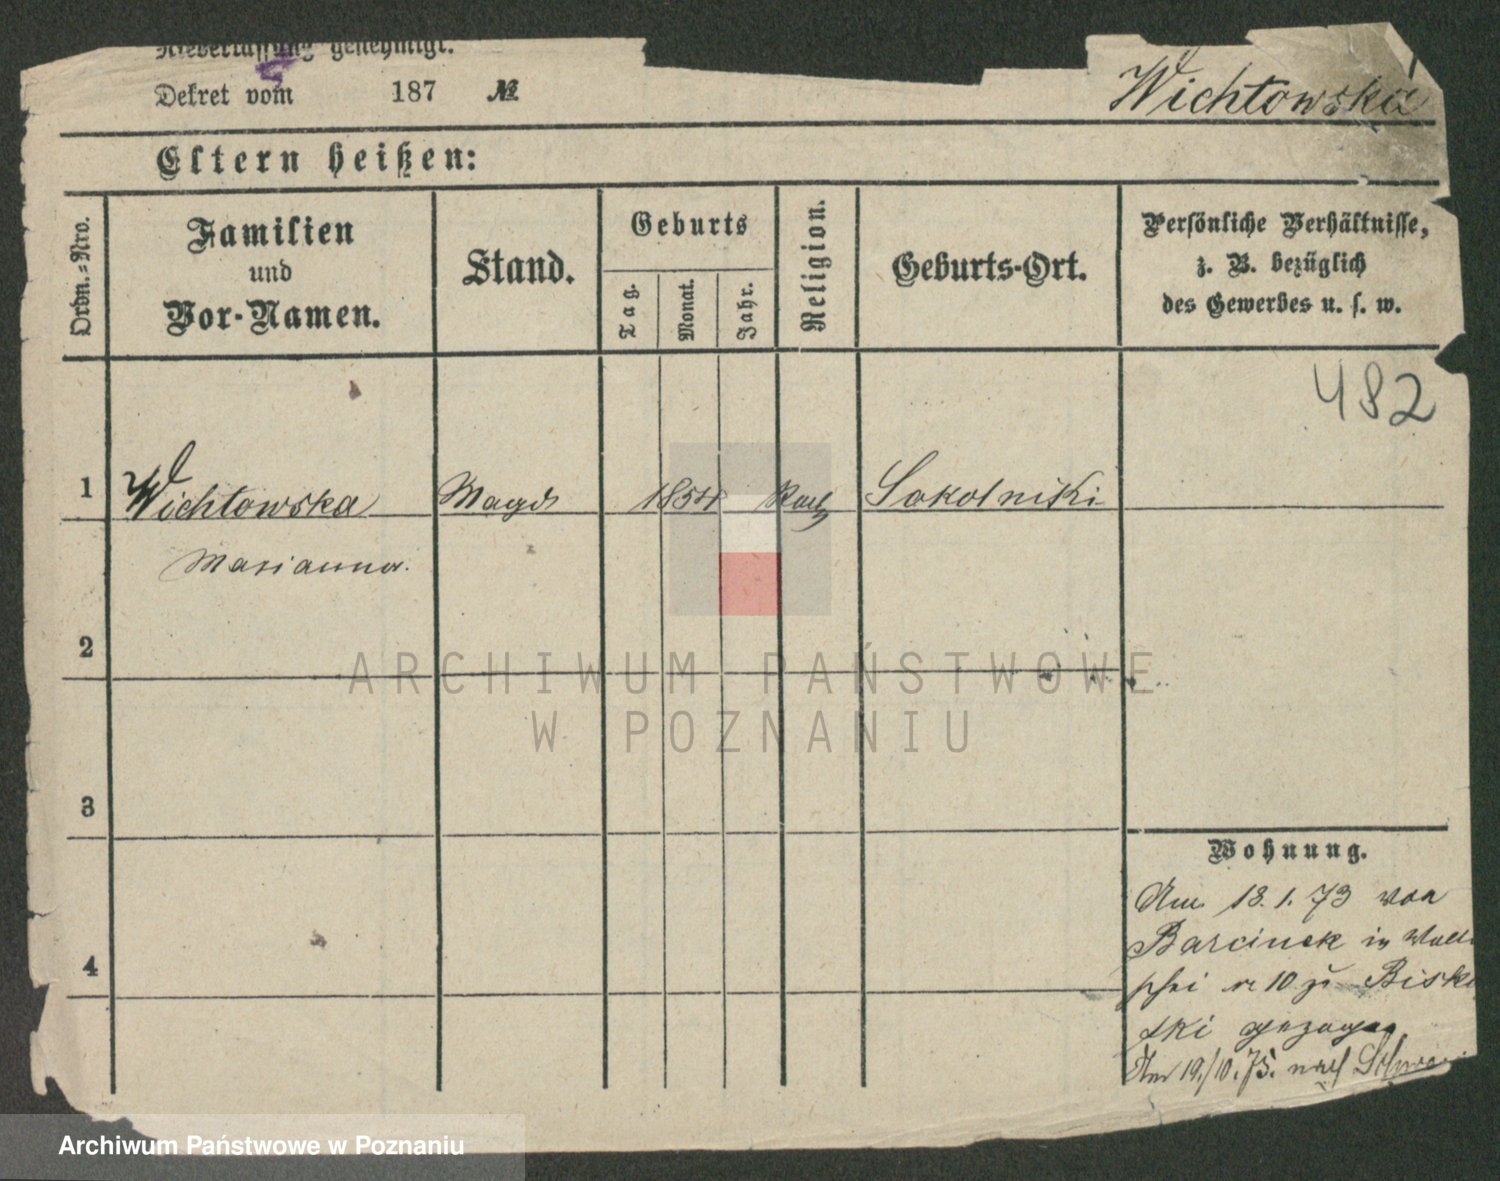 Niederlassung genehmigt.
Dekret vom 187 №
Wichtowska
Eltern heißen:
Ordn.=Nro.
Familien
und
Vor-Namen.
Stand.
Geburts
Tag.
Monat.
Jahr.
Religion.
Geburts-Ort.
Persönliche Verhältnisse,
z. B. bezüglich
des Gewerbes u. s. w.
482
1 Wichtowska Magd 1854 Kath Sokolniki
Marianna.
2
3
4
Wohnung.
Am 13.1.73 von
Barcinek in
10 zu Bisku
gezogen
Am 19./10.75. nach
ARCHIWUM PAŃSTWOWE
W POZNANIU
Archiwum Państwowe w Poznaniu